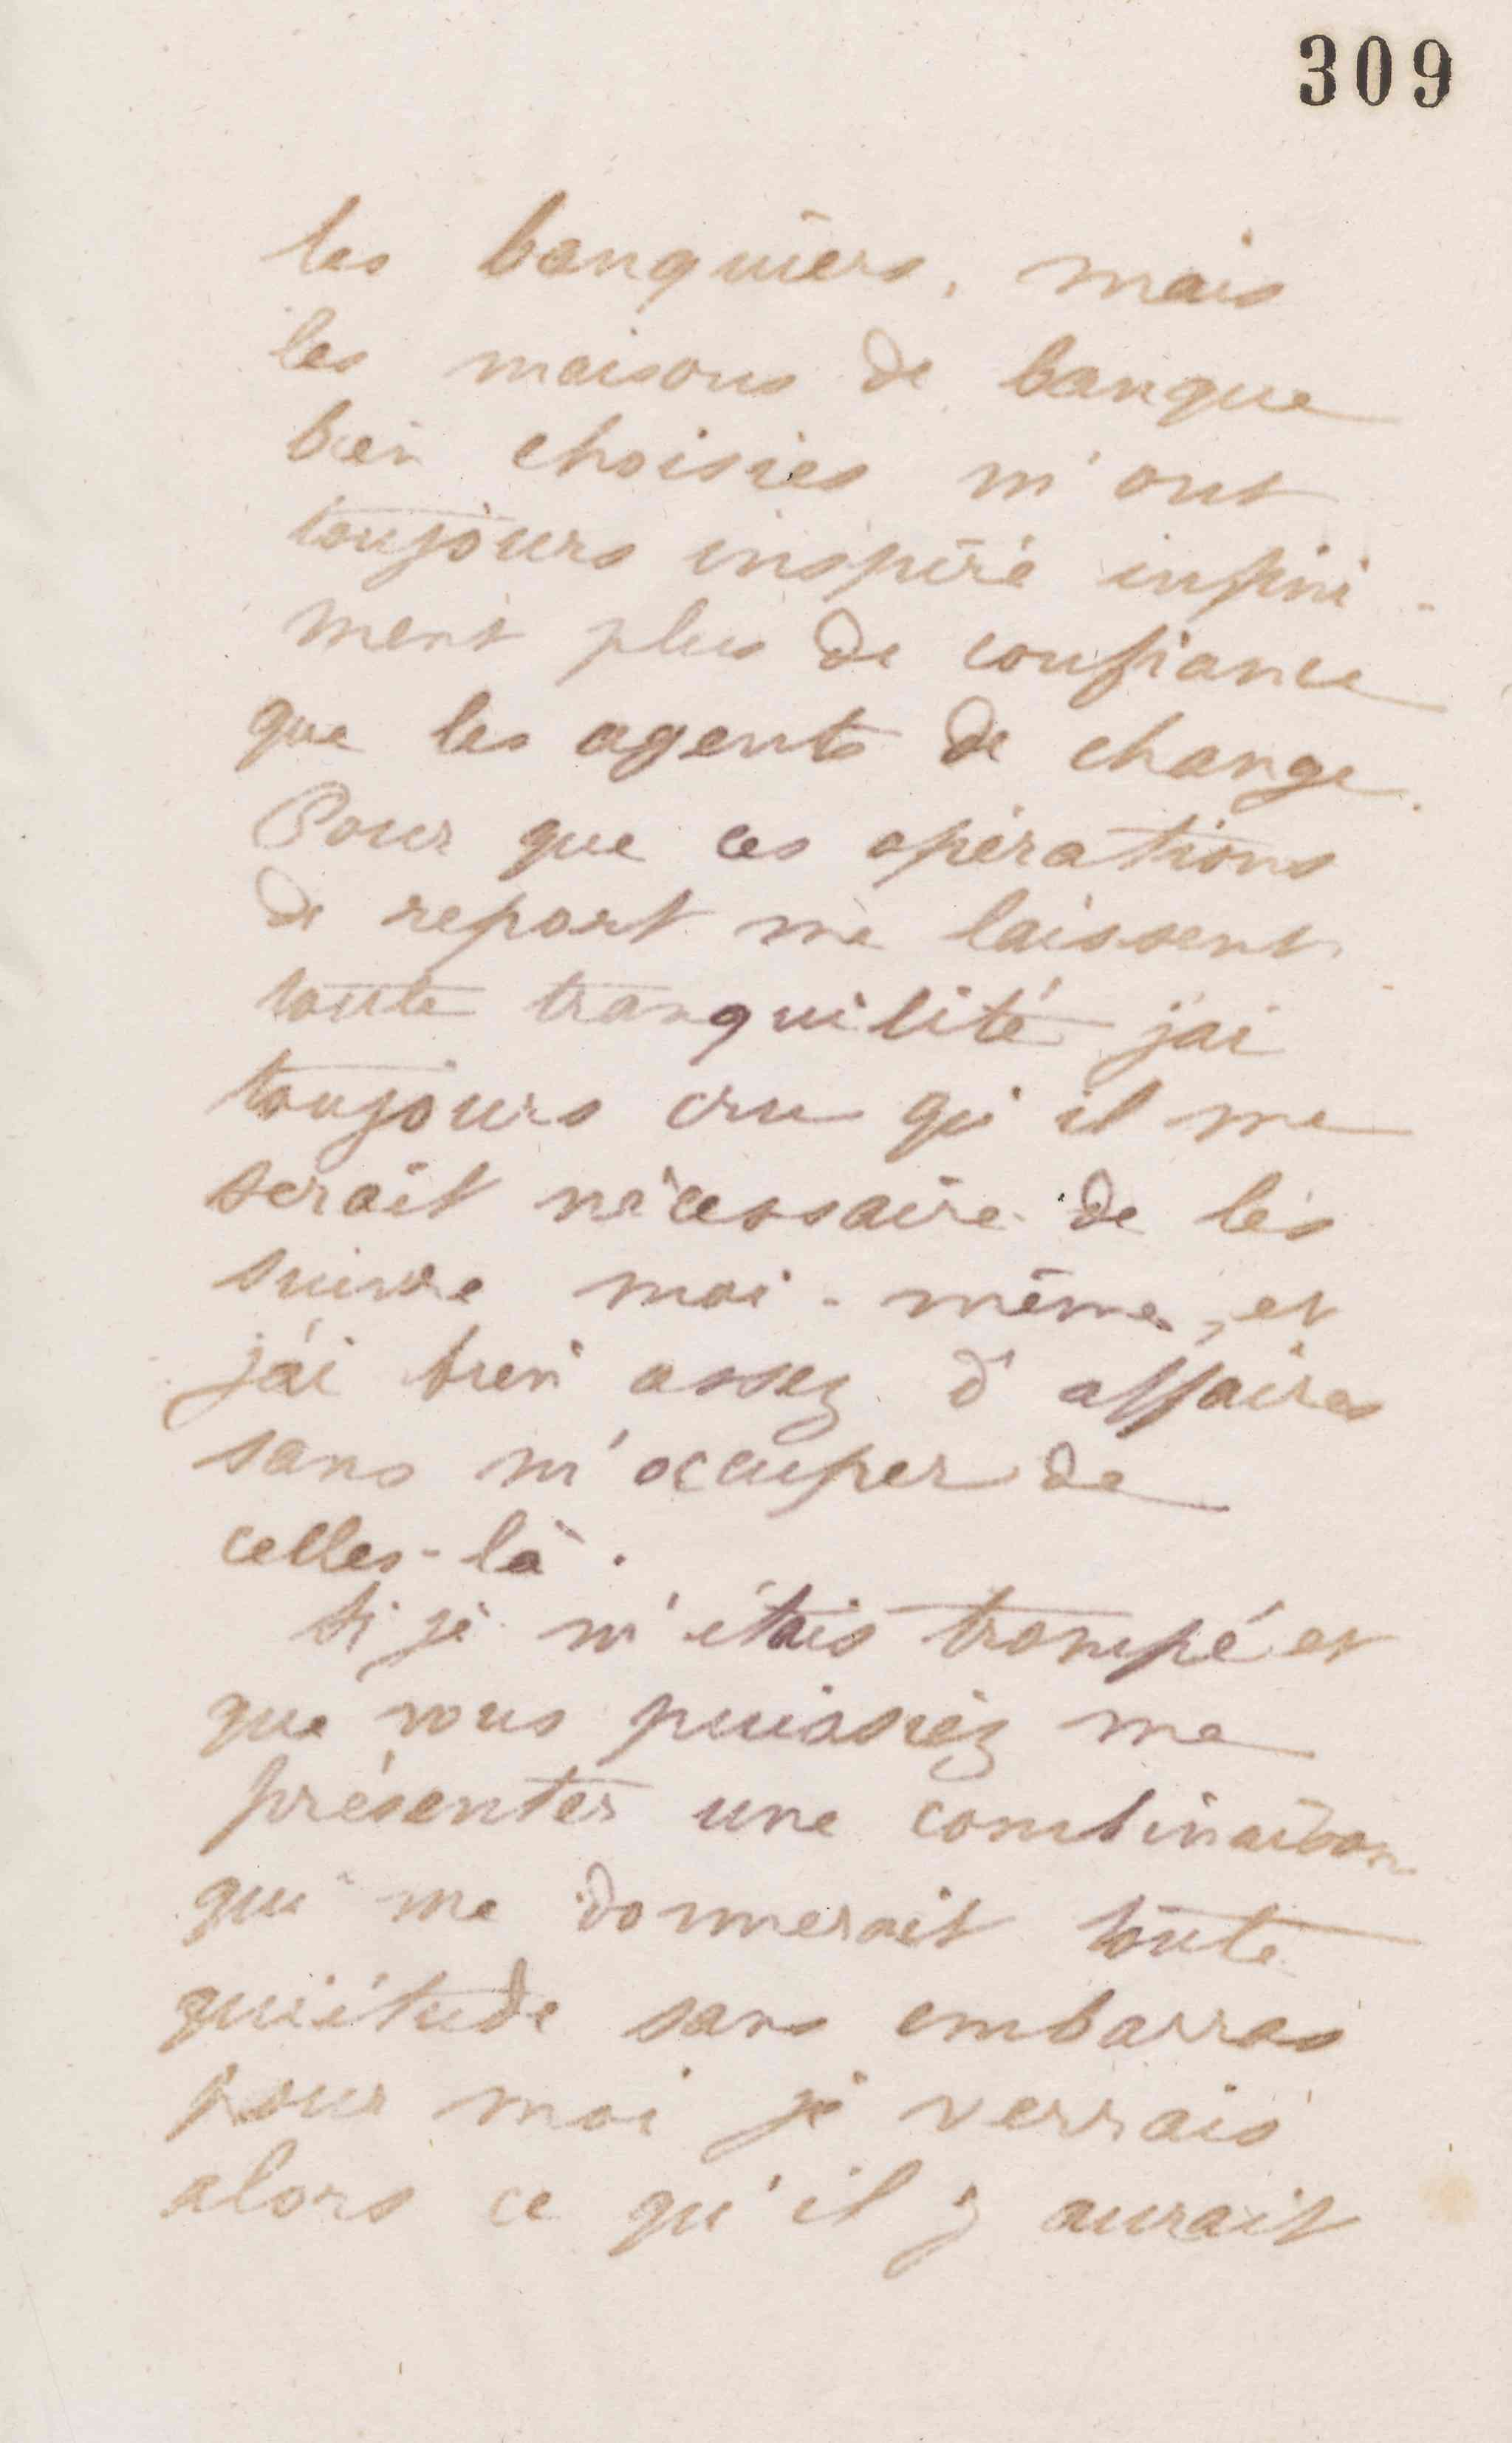 309
les banquiers, mais
les maisons de banque
bien choisies m'ont
toujours inspiré infini-
ment plus de confiance
que les agents de change.
Pour que ces opérations
de report me laissent
toute tranquilité j'ai
toujours cru qu'il me
serait nécessaire de les
suivre moi-même, et
j'ai bien assez d'affaires
sans m'occuper de
celles-là.
Si je m'étais trompé et
que vous puissiez me
présenter une combinaison
qui me donnerait toute
quiétude sans embarras
pour moi je verrais
alors ce qu'il y aurait